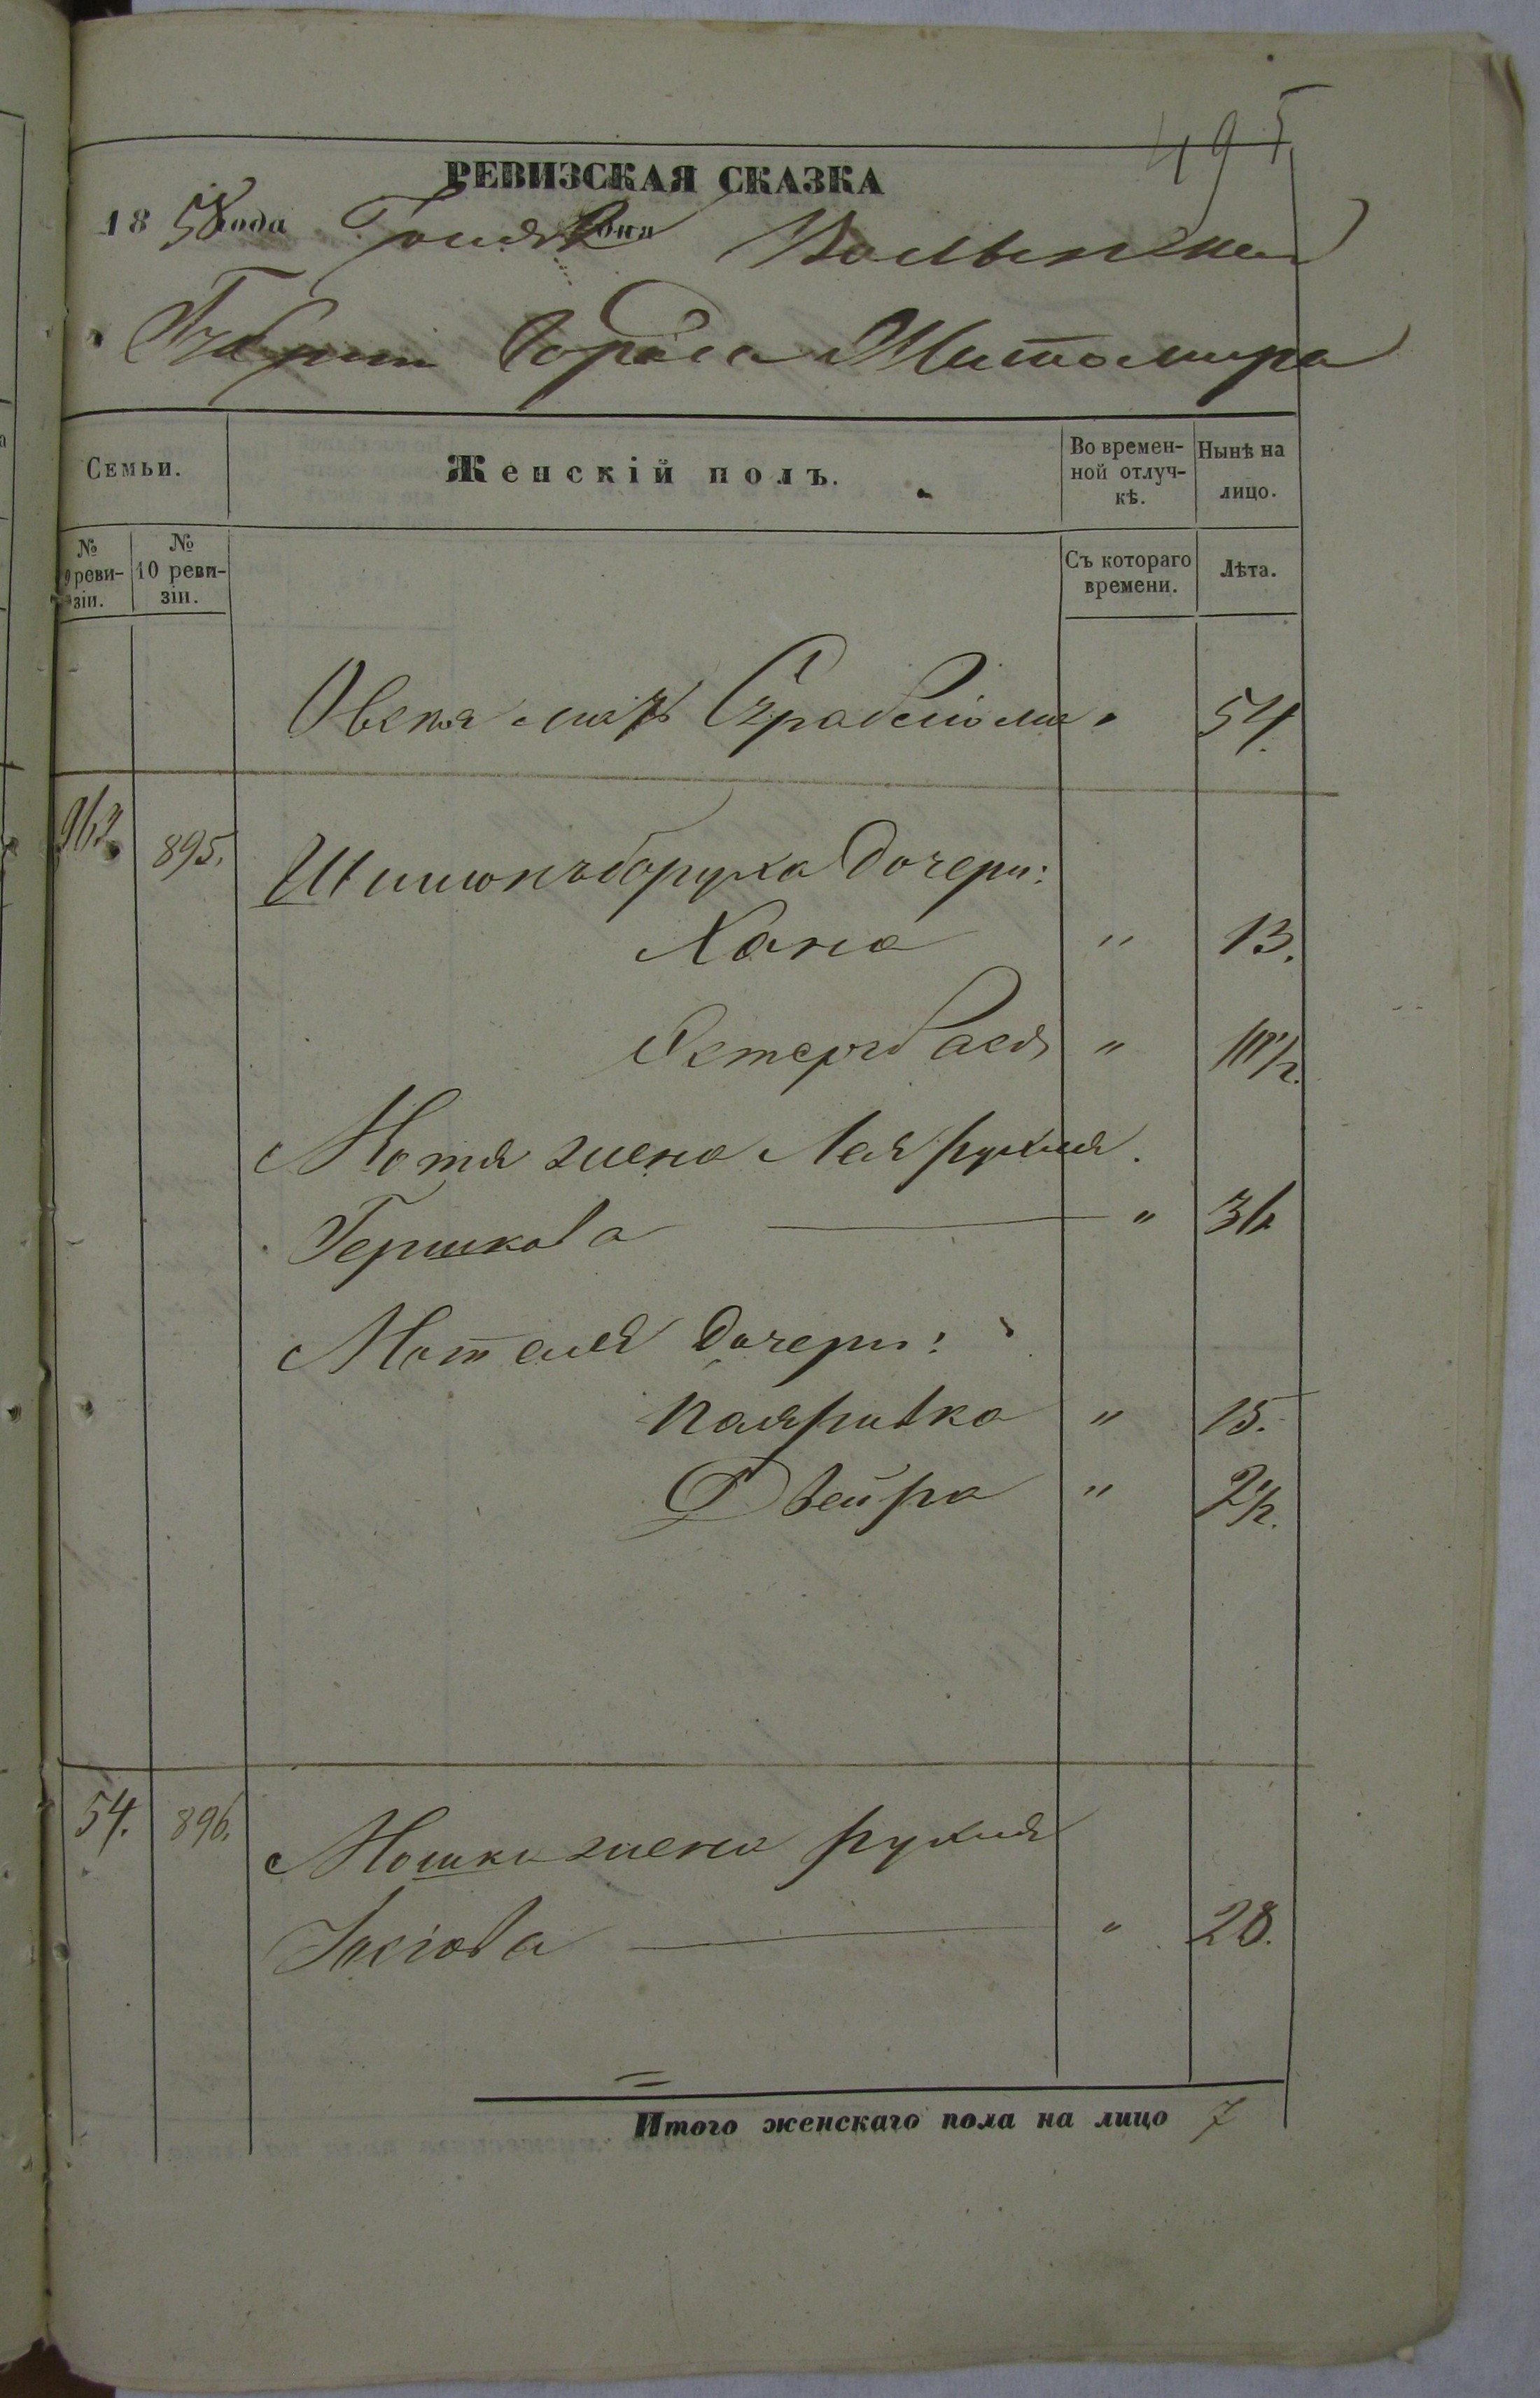 495
РЕВИЗСКАЯ СКАЗКА
1858 года Іюня дня Волынской
Губерніи Города Житомира
Семьи.
Женскій полъ.
Во времен-
ной отлуч-
кѣ.
Нынѣ на
лицо.
№
9 реви-
зіи.
№
10 реви-
зіи.
Съ котораго
времени.
Лѣта.
Овсея мать " 54.
963 895. Шимонъ боруха дочери:
Хана " 13.
Эстеръ бася "
Мотя жена Лея рухля.
Гершкова " 36
Мотеля дочери:
Паяривка " 15.
Двейра " 2 1/2.
54. 896. Мошка жена рухля
Іосіова " 28.
Итого женскаго пола на лицо 7